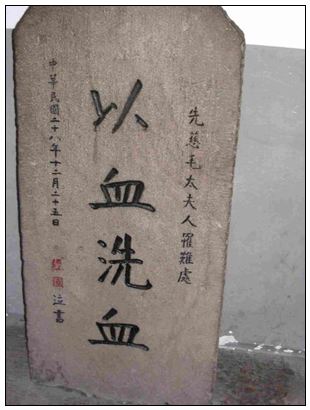 先慈毛太夫人罹難處
以血洗血
中華民國二十八年十二月二十五日
經國泣書